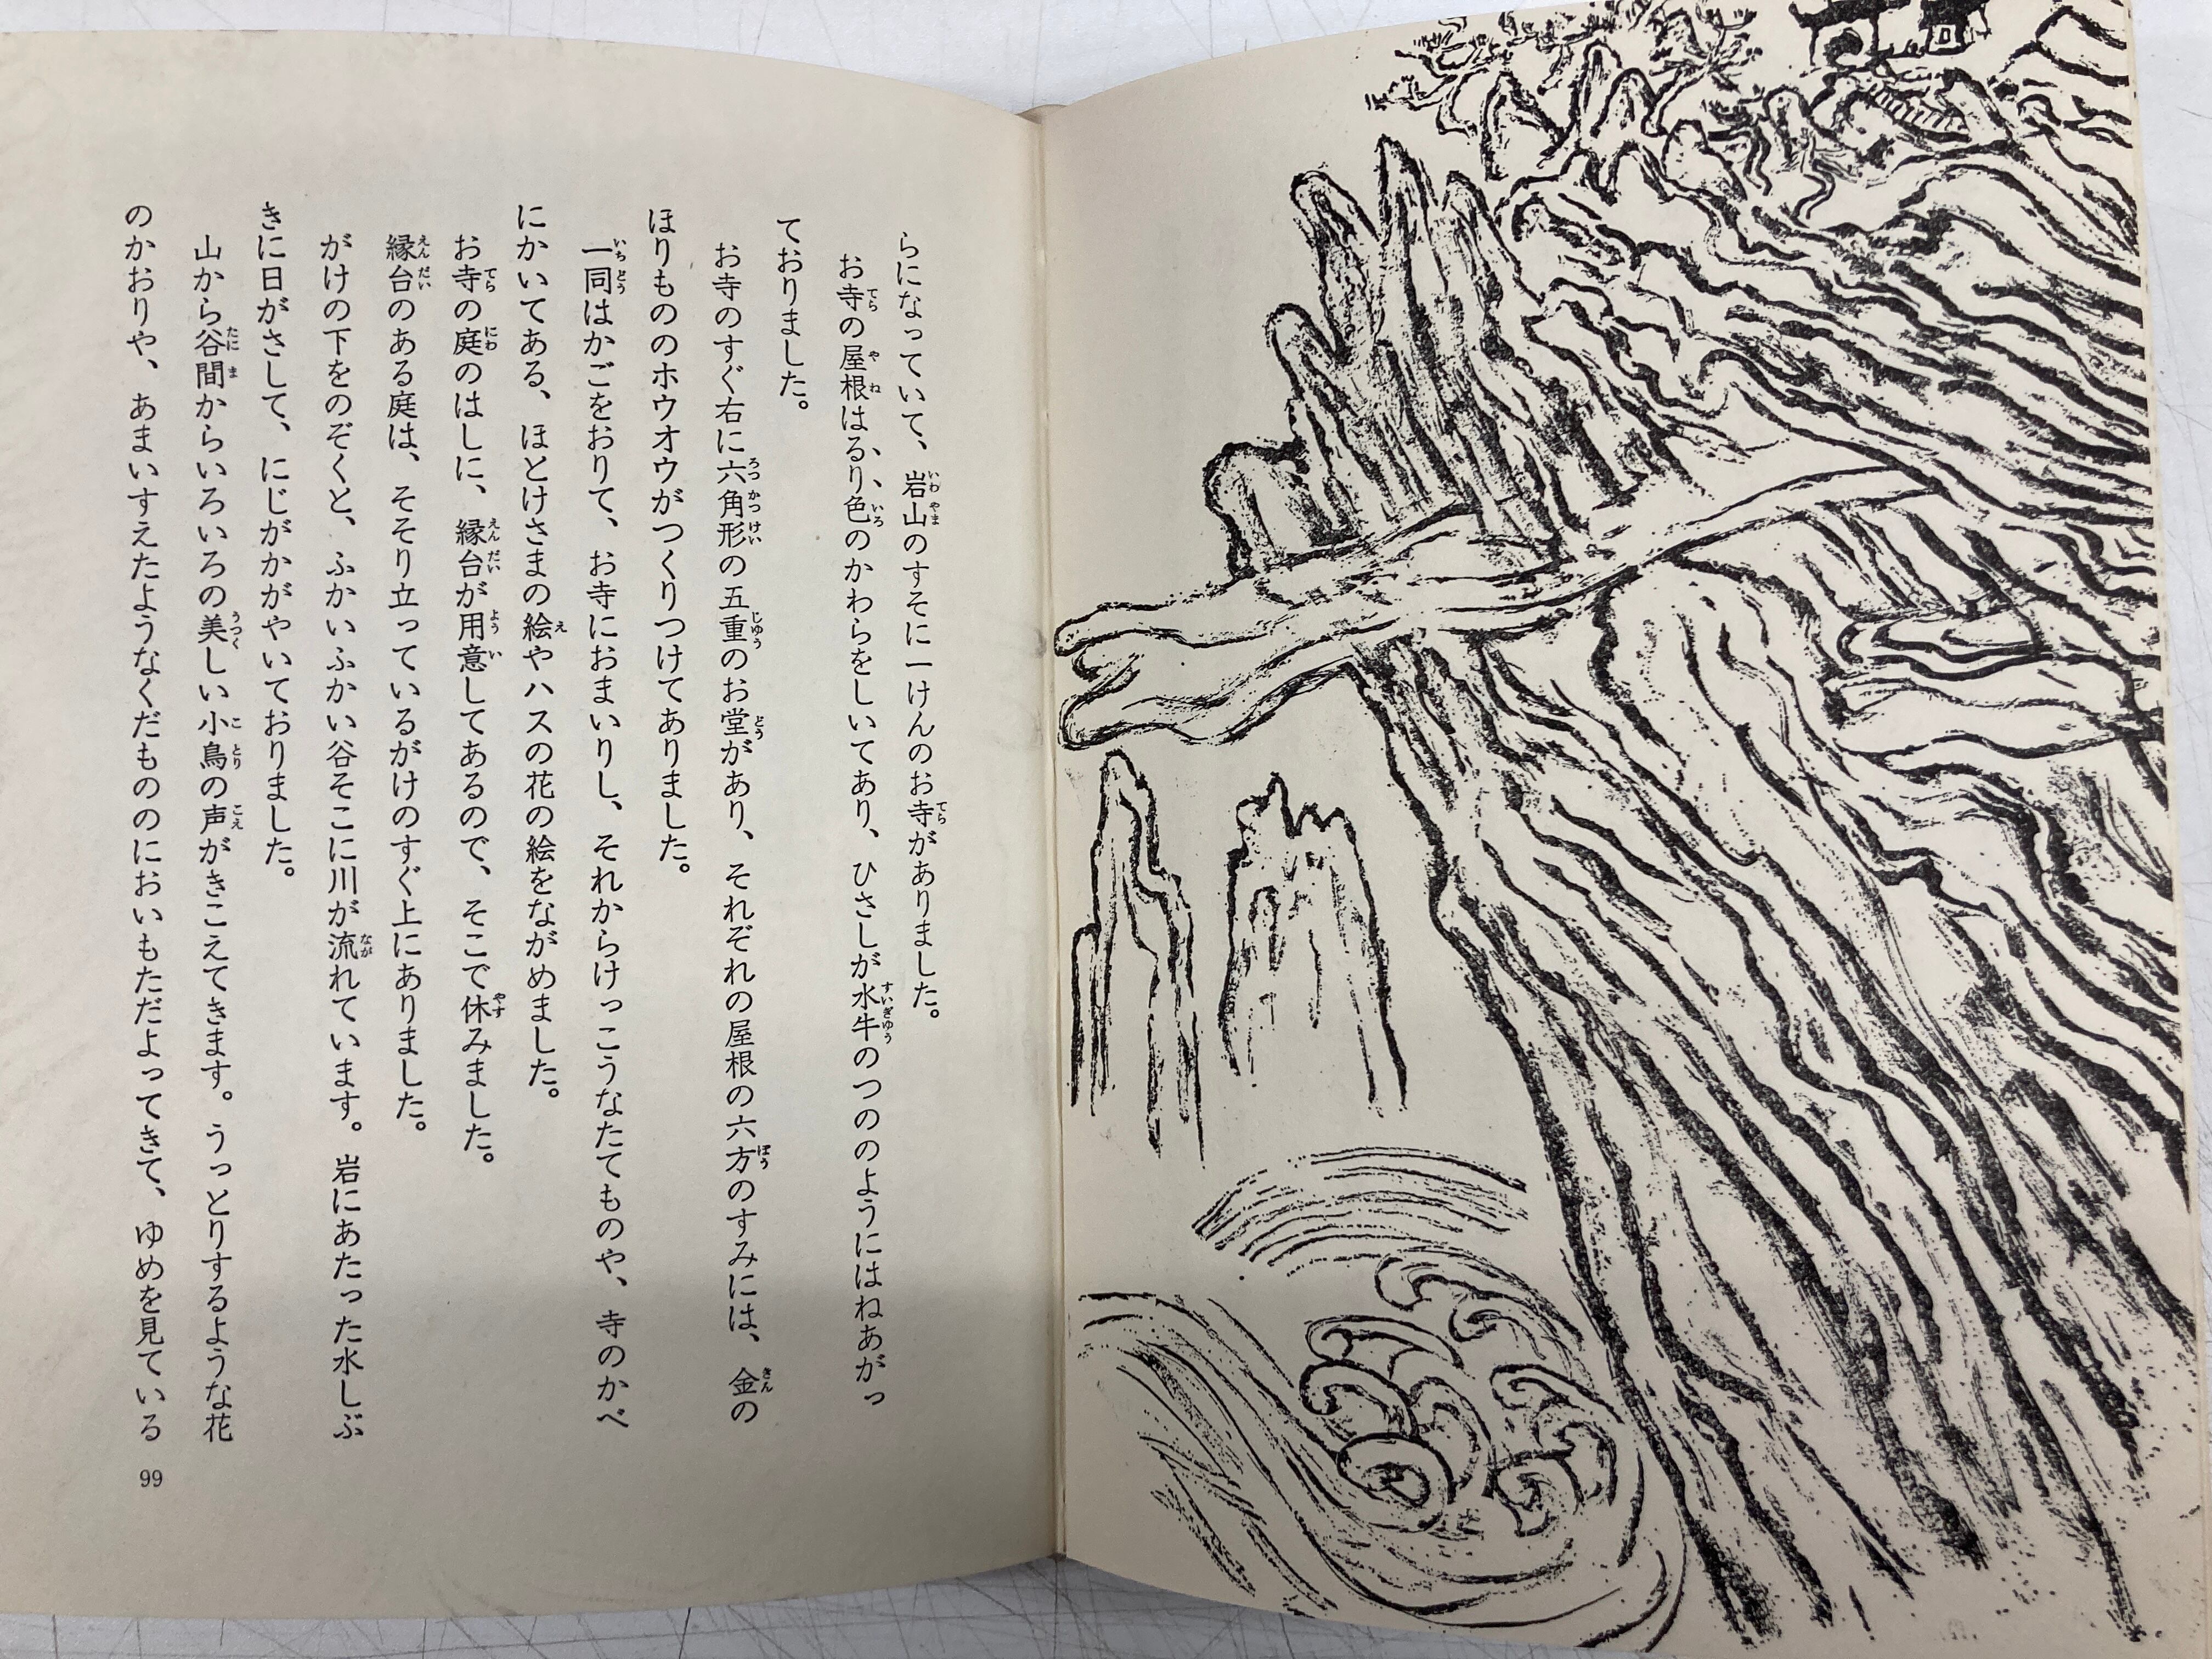 らになっていて、岩山のすそに一けんのお寺がありました。
お寺の屋根はるり色のかわらをしいてあり、ひさしが水牛のつののようにはねあがっ
ておりました。
お寺のすぐ右に六角形の五重のお堂があり、それぞれの屋根の六方のすみには、金の
ほりもののホウオウがつくりつけてありました。
一同はかごをおりて、お寺におまいりし、それからけっこうなたてものや、寺のかべ
にかいてある、ほとけさまの絵やハスの花の絵をながめました。
お寺の庭のはしに、縁台が用意してあるので、そこで休みました。
縁台のある庭は、そそり立っているがけのすぐ上にありました。
がけの下をのぞくと、ふかいふかい谷そこに川が流れています。岩にあたった水しぶ
きに日がさして、にじがかがやいておりました。
山から谷間からいろいろの美しい小鳥の声がきこえてきます。うっとりするような花
のかおりや、あまいすえたようなくだもののにおいもただよってきて、ゆめを見ている
99